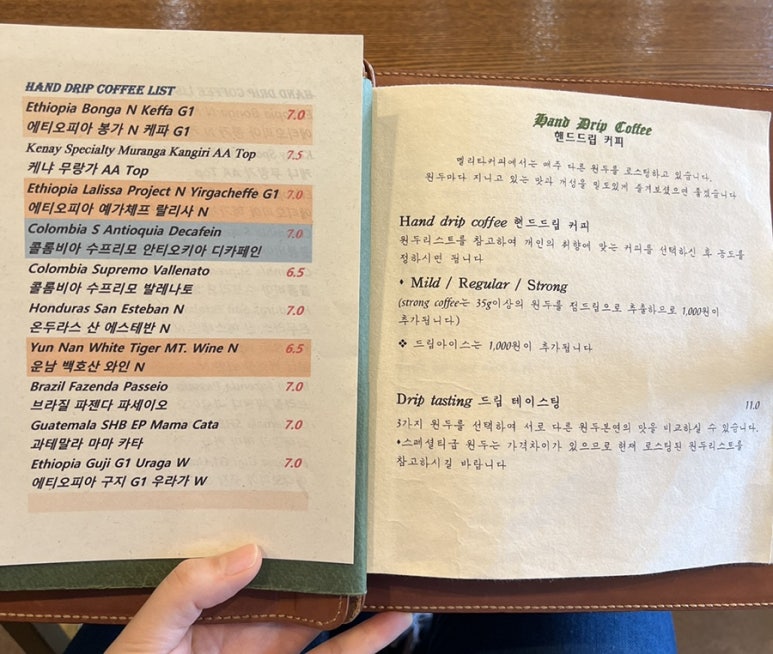 HAND DRIP COFFEE LIST
Ethiopia Bonga N Keffa G1 7.0
에티오피아 봉가 N 케파 G1
Kenay Specialty Muranga Kangiri AA Top 7.5
케냐 무랑가 AA Top
Ethiopia Lalissa Project N Yirgacheffe G1 7.0
에티오피아 예가체프 랄리사 N
Colombia S Antioquia Decafein 7.0
콜롬비아 수프리모 안티오키아 디카페인
Colombia Supremo Vallenato 6.5
콜롬비아 수프리모 발레나토
Honduras San Esteban N 7.0
온두라스 산 에스테반 N
Yun Nan White Tiger MT. Wine N 6.5
운남 백호산 와인 N
Brazil Fazenda Passeio 7.0
브라질 파젠다 파세이오
Guatemala SHB EP Mama Cata 7.0
과테말라 마마 카타
Ethiopia Guji G1 Uraga W 7.0
에티오피아 구지 G1 우라가 W
Hand Drip Coffee
핸드드립 커피
멜리타커피에서는 매주 다른 원두를 로스팅하고 있습니다.
원두마다 지니고 있는 맛과 개성을 밀도있게 즐겨보셨으면 좋겠습니다
Hand drip coffee 핸드드립 커피
원두리스트를 참고하여 개인의 취향에 맞는 커피를 선택하신 후 농도를
정하시면 됩니다
♦ Mild / Regular / Strong
(strong coffee는 35g이상의 원두를 점드립으로 추출하므로 1,000원이
추가됩니다)
❖ 드립아이스는 1,000원이 추가됩니다
Drip tasting 드립 테이스팅 11.0
3가지 원두를 선택하여 서로 다른 원두본연의 맛을 비교하실 수 있습니다.
*스페셜티급 원두는 가격차이가 있으므로 현재 로스팅된 원두리스트를
참고하시길 바랍니다